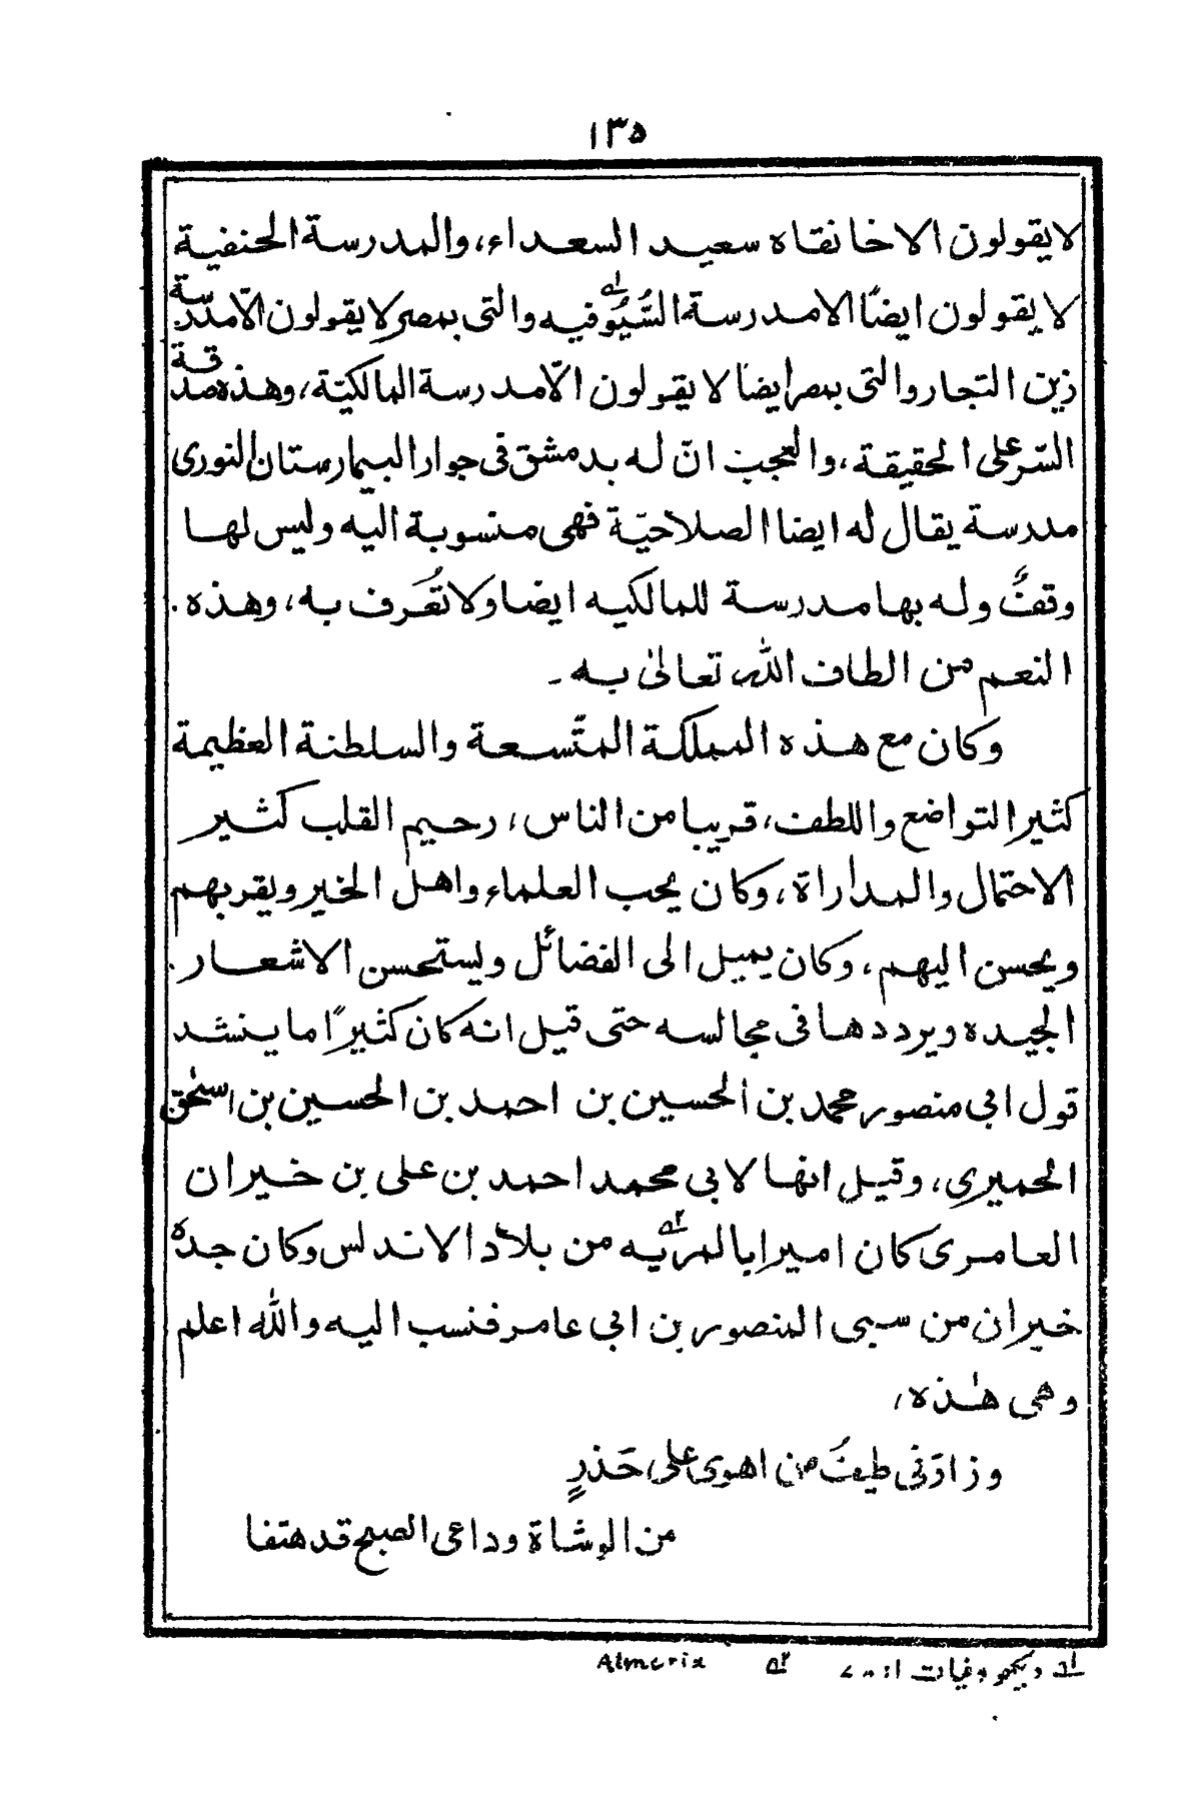 ١٣٥
لا يقولون الا خانقاه سعيد السعداء، والمدرسة الحنفية
لا يقولون ايضًا الا مدرسة السُّيُوفيه والتى بمصر لا يقولون الّا مدرسة
زين التجار والتى بمصر ايضا لا يقولون الّا مدرسة المالكيّة، وهذه صدقة
السّر على الحقيقة، والعجب انّ له بدمشق فى جوار البيمارستان النورى
مدرسة يقال له ايضا الصلاحيّة فهى منسوبة اليه وليس لها
وقفٌ وله بها مدرسة للمالكيه ايضا ولا تُعَرف به، وهذه
النعم من الطاف الله تعالىٰ به ۔
وكان مع هذه المملكة المتّسعة والسلطنة العظيمة
كثير التواضع واللطف، قريبا من الناس، رحيم القلب كثير
الاحتمال والمداراة، وكان يحب العلماء واهل الخير ويقربهم
ويحسن اليهم، وكان يميل الى الفضائل ويستحسن الاشعار
الجيده ويرددها فى مجالسه حتى قيل انه كان كثيرًا ما ينشد
قول ابى منصور محمد بن الحسين بن احمد بن الحسين بن اسحٰق
الحميرى، وقيل انها لابى محمد احمد بن على بن خيران
العامرى كان اميرا بالمرّيه ٢ من بلاد الاندلس وكان جده
خيران من سبى المنصور بن ابى عامر فنسب اليه والله اعلم
وهى هٰذه،
وزارَنى طيفُ من اهوى على حَذرٍ
من الوشاة وداعى الصبح قد هتفا
١ ديكهو وفيات ٢ Almeria